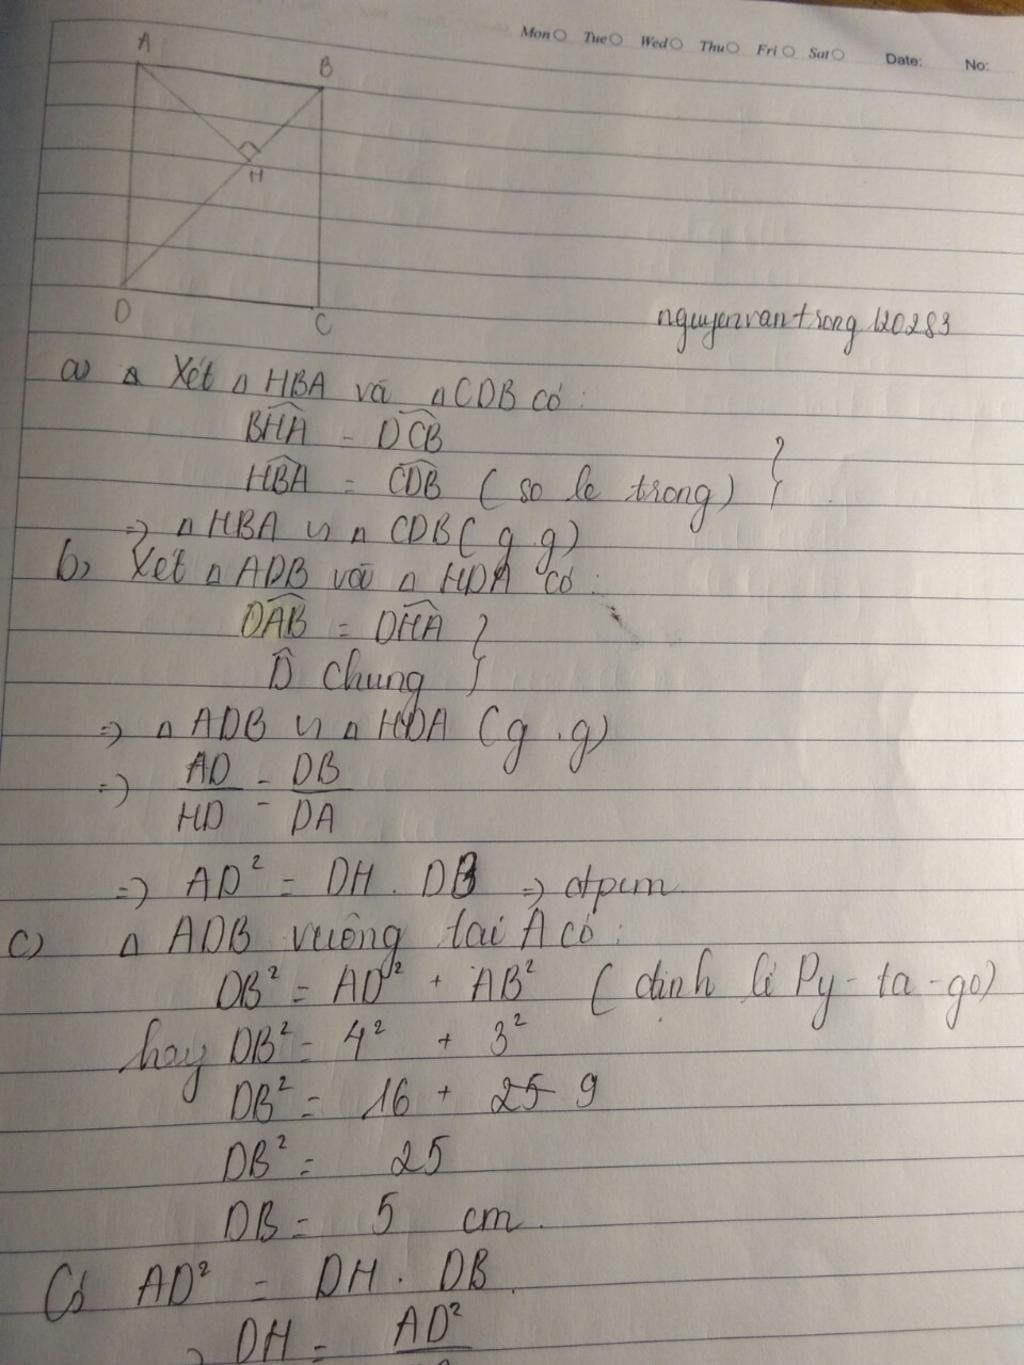 Mon Tue Wed Thu Fri Sat Date: No:
A
B
H
D
C
nguyenvantrong120283
a) ∆ Xét ∆ HBA và ∆ CDB có:
BHA = DCB
HBA = CDB (so le trong) }
=> ∆ HBA ∽ ∆ CDB (g.g)
b) Xét ∆ ADB và ∆ HDA có:
DAB = DHA }
D̂ chung
=> ∆ ADB ∽ ∆ HDA (g.g)
=> AD/HD = DB/DA
=> AD² = DH . DB => đpcm
c) ∆ ADB vuông tại A có:
DB² = AD² + AB² (định lí Py-ta-go)
hay DB² = 4² + 3²
DB² = 16 + 25 9
DB² = 25
DB = 5 cm.
Có AD² = DH . DB.
DH = AD²